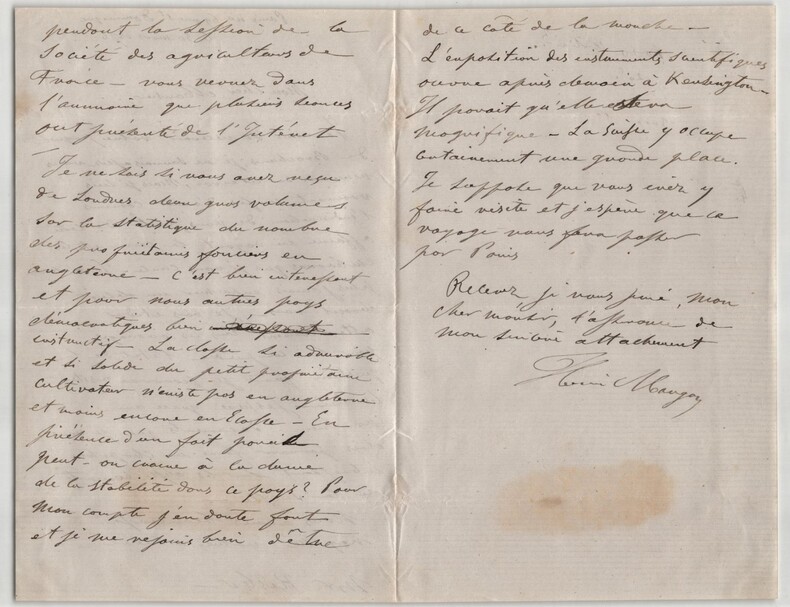 pendant la session de la
Société des agriculteurs de
France — vous verrez dans
l'annuaire que plusieurs séances
ont présenté de l'Intérêt
Je ne sais si vous avez reçu
de Londres deux gros volumes
sur la statistique du nombre
des propriétaires fonciers en
angleterre — C'est bien intéressant
et pour nous autres pays
démocratiques bien
instructif. La classe si admirable
et si solide du petit propriétaire
cultivateur n'existe pas en angleterre
et moins encore en Ecosse — En
présence d'un fait pareil
peut-on croire à la durée
de la stabilité dans ce pays? Pour
mon compte j'en doute fort
et je me rejouis bien d'être
de ce coté de la manche —
L'exposition des instruments scientifiques
ouvre après demain à Kensington —
Il parait qu'elle sera
magnifique — La Suisse y occupe
certainement une grande place.
Je suppose que vous irez y
faire visite et j'espère que ce
voyage vous fera passer
par Paris
Recevez je vous prie, mon
cher monsieur, l'assurance de
mon sincère attachement
Hervé Mangon